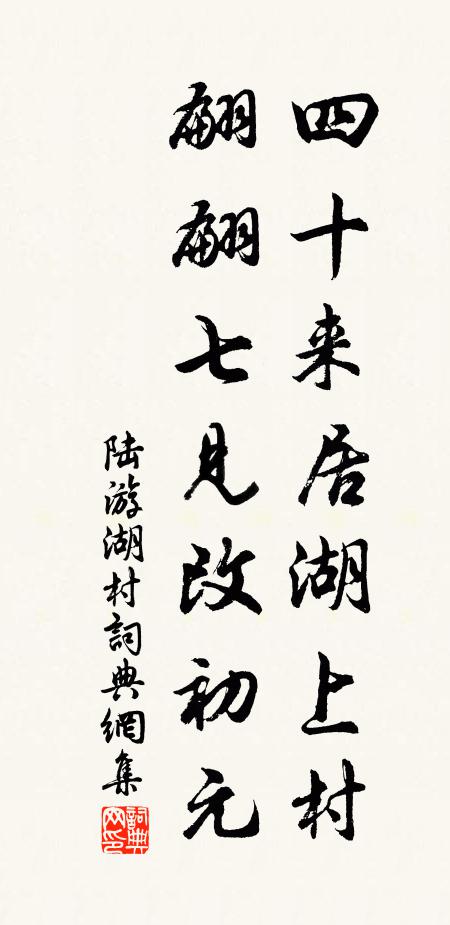 四十来居湖上村
翩翩七見改初元
陆游湖村詞典網集
詞典网印